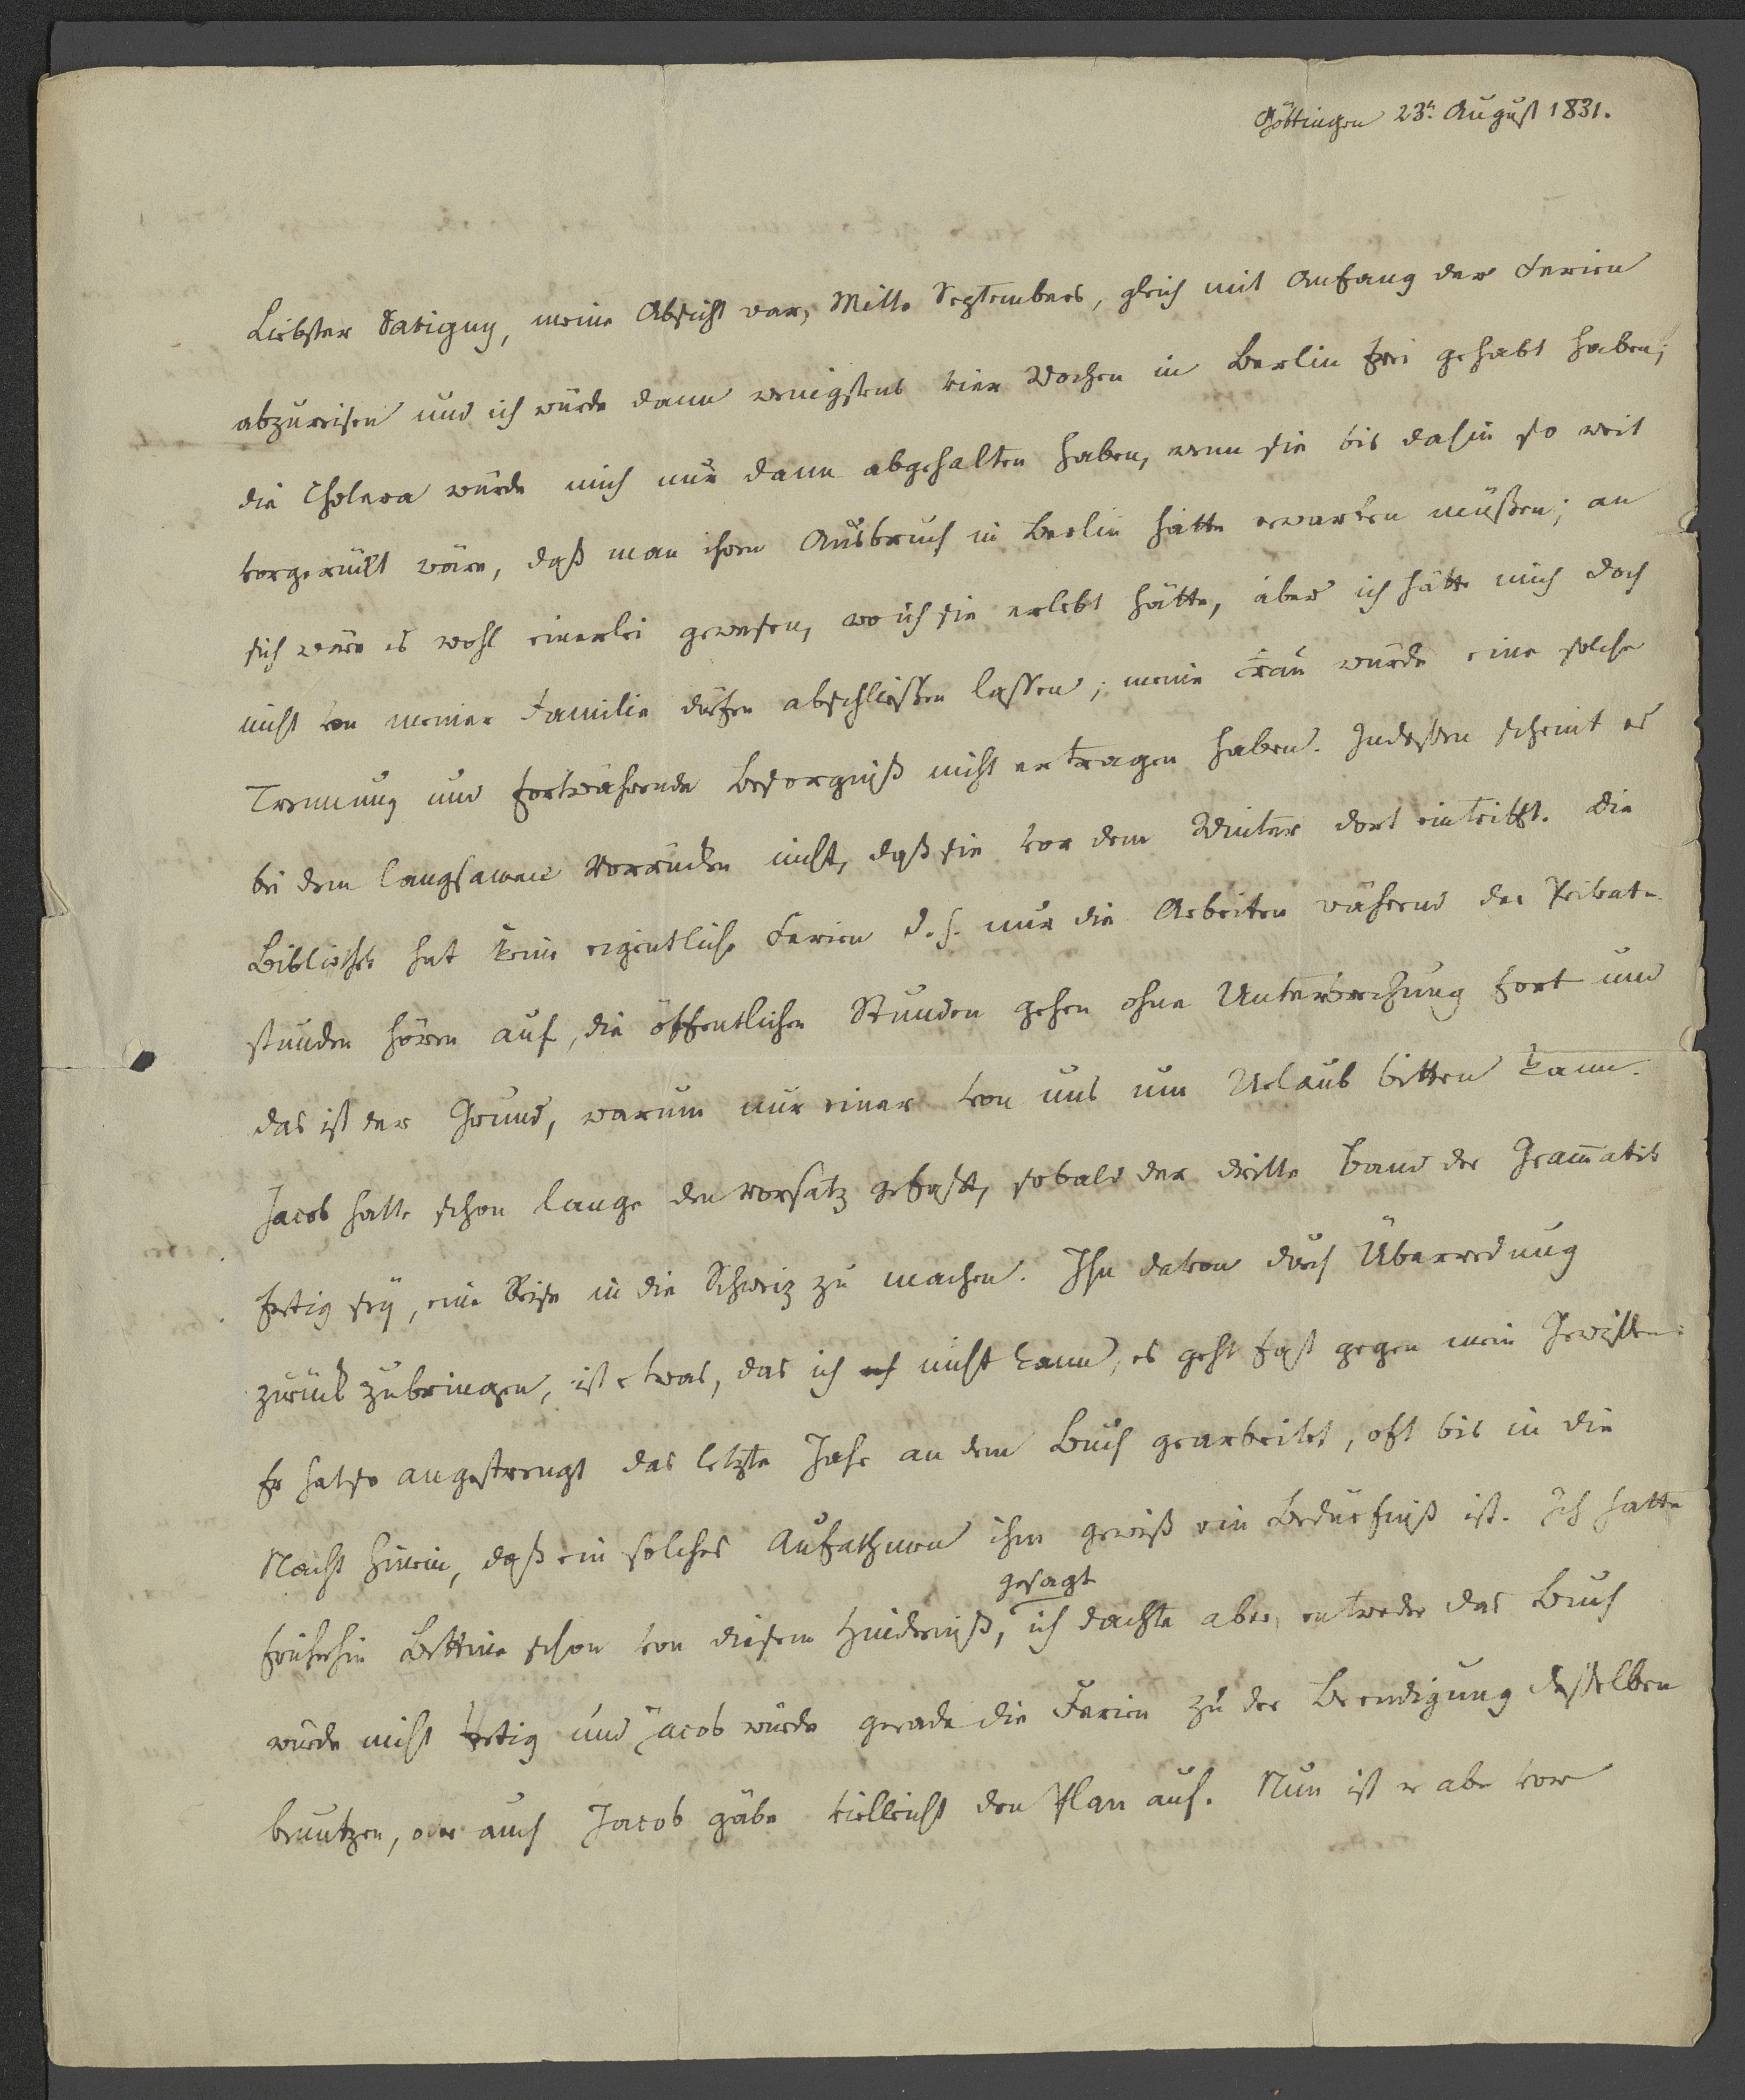 Göttingen 23t. August 1831.
Liebster Savigny, meine Absicht war, Mitte Septembers, gleich mit Anfang der Ferien
abzureisen und ich würde dann wenigstens vier Wochen in Berlin frei gehabt haben;
die Cholera würde mich nur dann abgehalten haben, wenn sie bis dahin so weit
vorgerückt wäre, daß man ihren Ausbruch in Berlin hätte erwarten müßen; an
sich wäre es wohl einerlei gewesen, wo ich sie erlebt hätte, aber ich hätte mich doch
nicht von meiner Familie dürfen abschließen lassen; meine Frau würde eine solche
Trennung und fortwährende Besorgniß nicht ertragen haben. Indessen scheint es
bei dem langsamen Vorrücken nicht, daß sie vor dem Winter dort eintrifft. Die
Bibliothek hat keine eigentliche Ferien d. h. nur die Arbeiten während der Privat-
stunden hören auf, die öffentlichen Stunden gehen ohne Unterbrechung fort und
das ist der Grund, warum nur einer von uns um Urlaub bitten kann.
Jacob hatte schon lange den Vorsatz gefaßt, sobald der dritte Band der Gram̅atik
fertig sey, eine Reise in die Schweiz zu machen. Ihn davon durch Überredung
zurück zubringen, ist etwas, das ich nicht kann, es geht fast gegen mein Gewissen:
Er hat so angestrengt das letzte Jahr an dem Buch gearbeitet, oft bis in die
Nacht hinein, daß ein solches Aufathmen ihm gewiß ein Bedürfniß ist. Ich hatte
gesagt
früherhin Bettine schon von diesem Hinderniß, ich dachte aber, entweder das Buch
würde nicht fertig und Jacob würde gerade die Ferien zu der Beendigung desselben
benutzen, oder auch Jacob gäbe vielleicht den Plan auf. Nun ist er aber vor